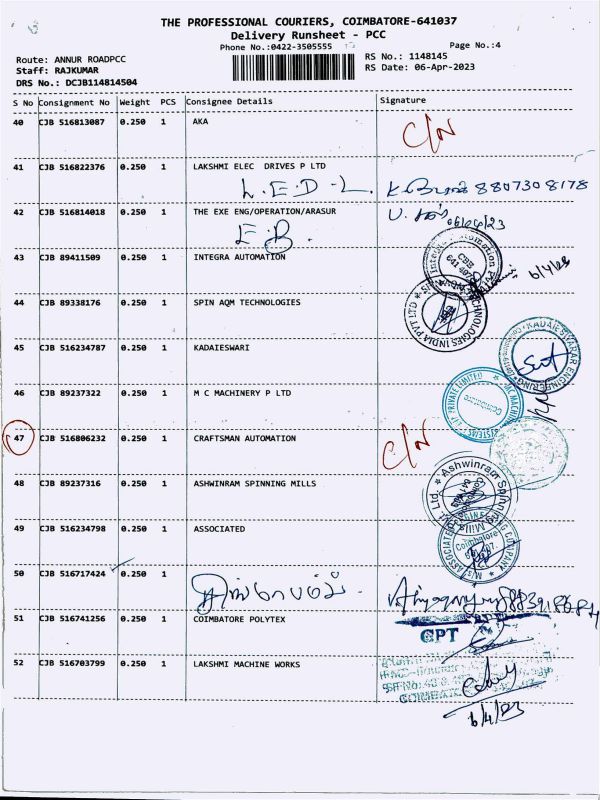 THE PROFESSIONAL COURIERS, COIMBATORE-641037
Delivery Runsheet - PCC
Phone No.:0422-3505555
Page No.:4
Route: ANNUR ROADPCC
RS No.: 1148145
Staff: RAJKUMAR
RS Date: 06-Apr-2023
DRS No.: DCJB114814504
S No Consignment No Weight PCS Consignee Details Signature
40 CJB 516813087 0.250 1 AKA C/N
41 CJB 516822376 0.250 1 LAKSHMI ELEC DRIVES P LTD
L.E.D-L. 8807308178
42 CJB 516814018 0.250 1 THE EXE ENG/OPERATION/ARASUR
E.B. 06/04/23
43 CJB 89411509 0.250 1 INTEGRA AUTOMATION 6/4/23
44 CJB 89338176 0.250 1 SPIN AQM TECHNOLOGIES
45 CJB 516234787 0.250 1 KADAIESWARI
46 CJB 89237322 0.250 1 M C MACHINERY P LTD
47 CJB 516806232 0.250 1 CRAFTSMAN AUTOMATION C/N
48 CJB 89237316 0.250 1 ASHWINRAM SPINNING MILLS
49 CJB 516234798 0.250 1 ASSOCIATED
50 CJB 516717424 0.250 1
51 CJB 516741256 0.250 1 COIMBATORE POLYTEX CPT
52 CJB 516703799 0.250 1 LAKSHMI MACHINE WORKS
6/4/23